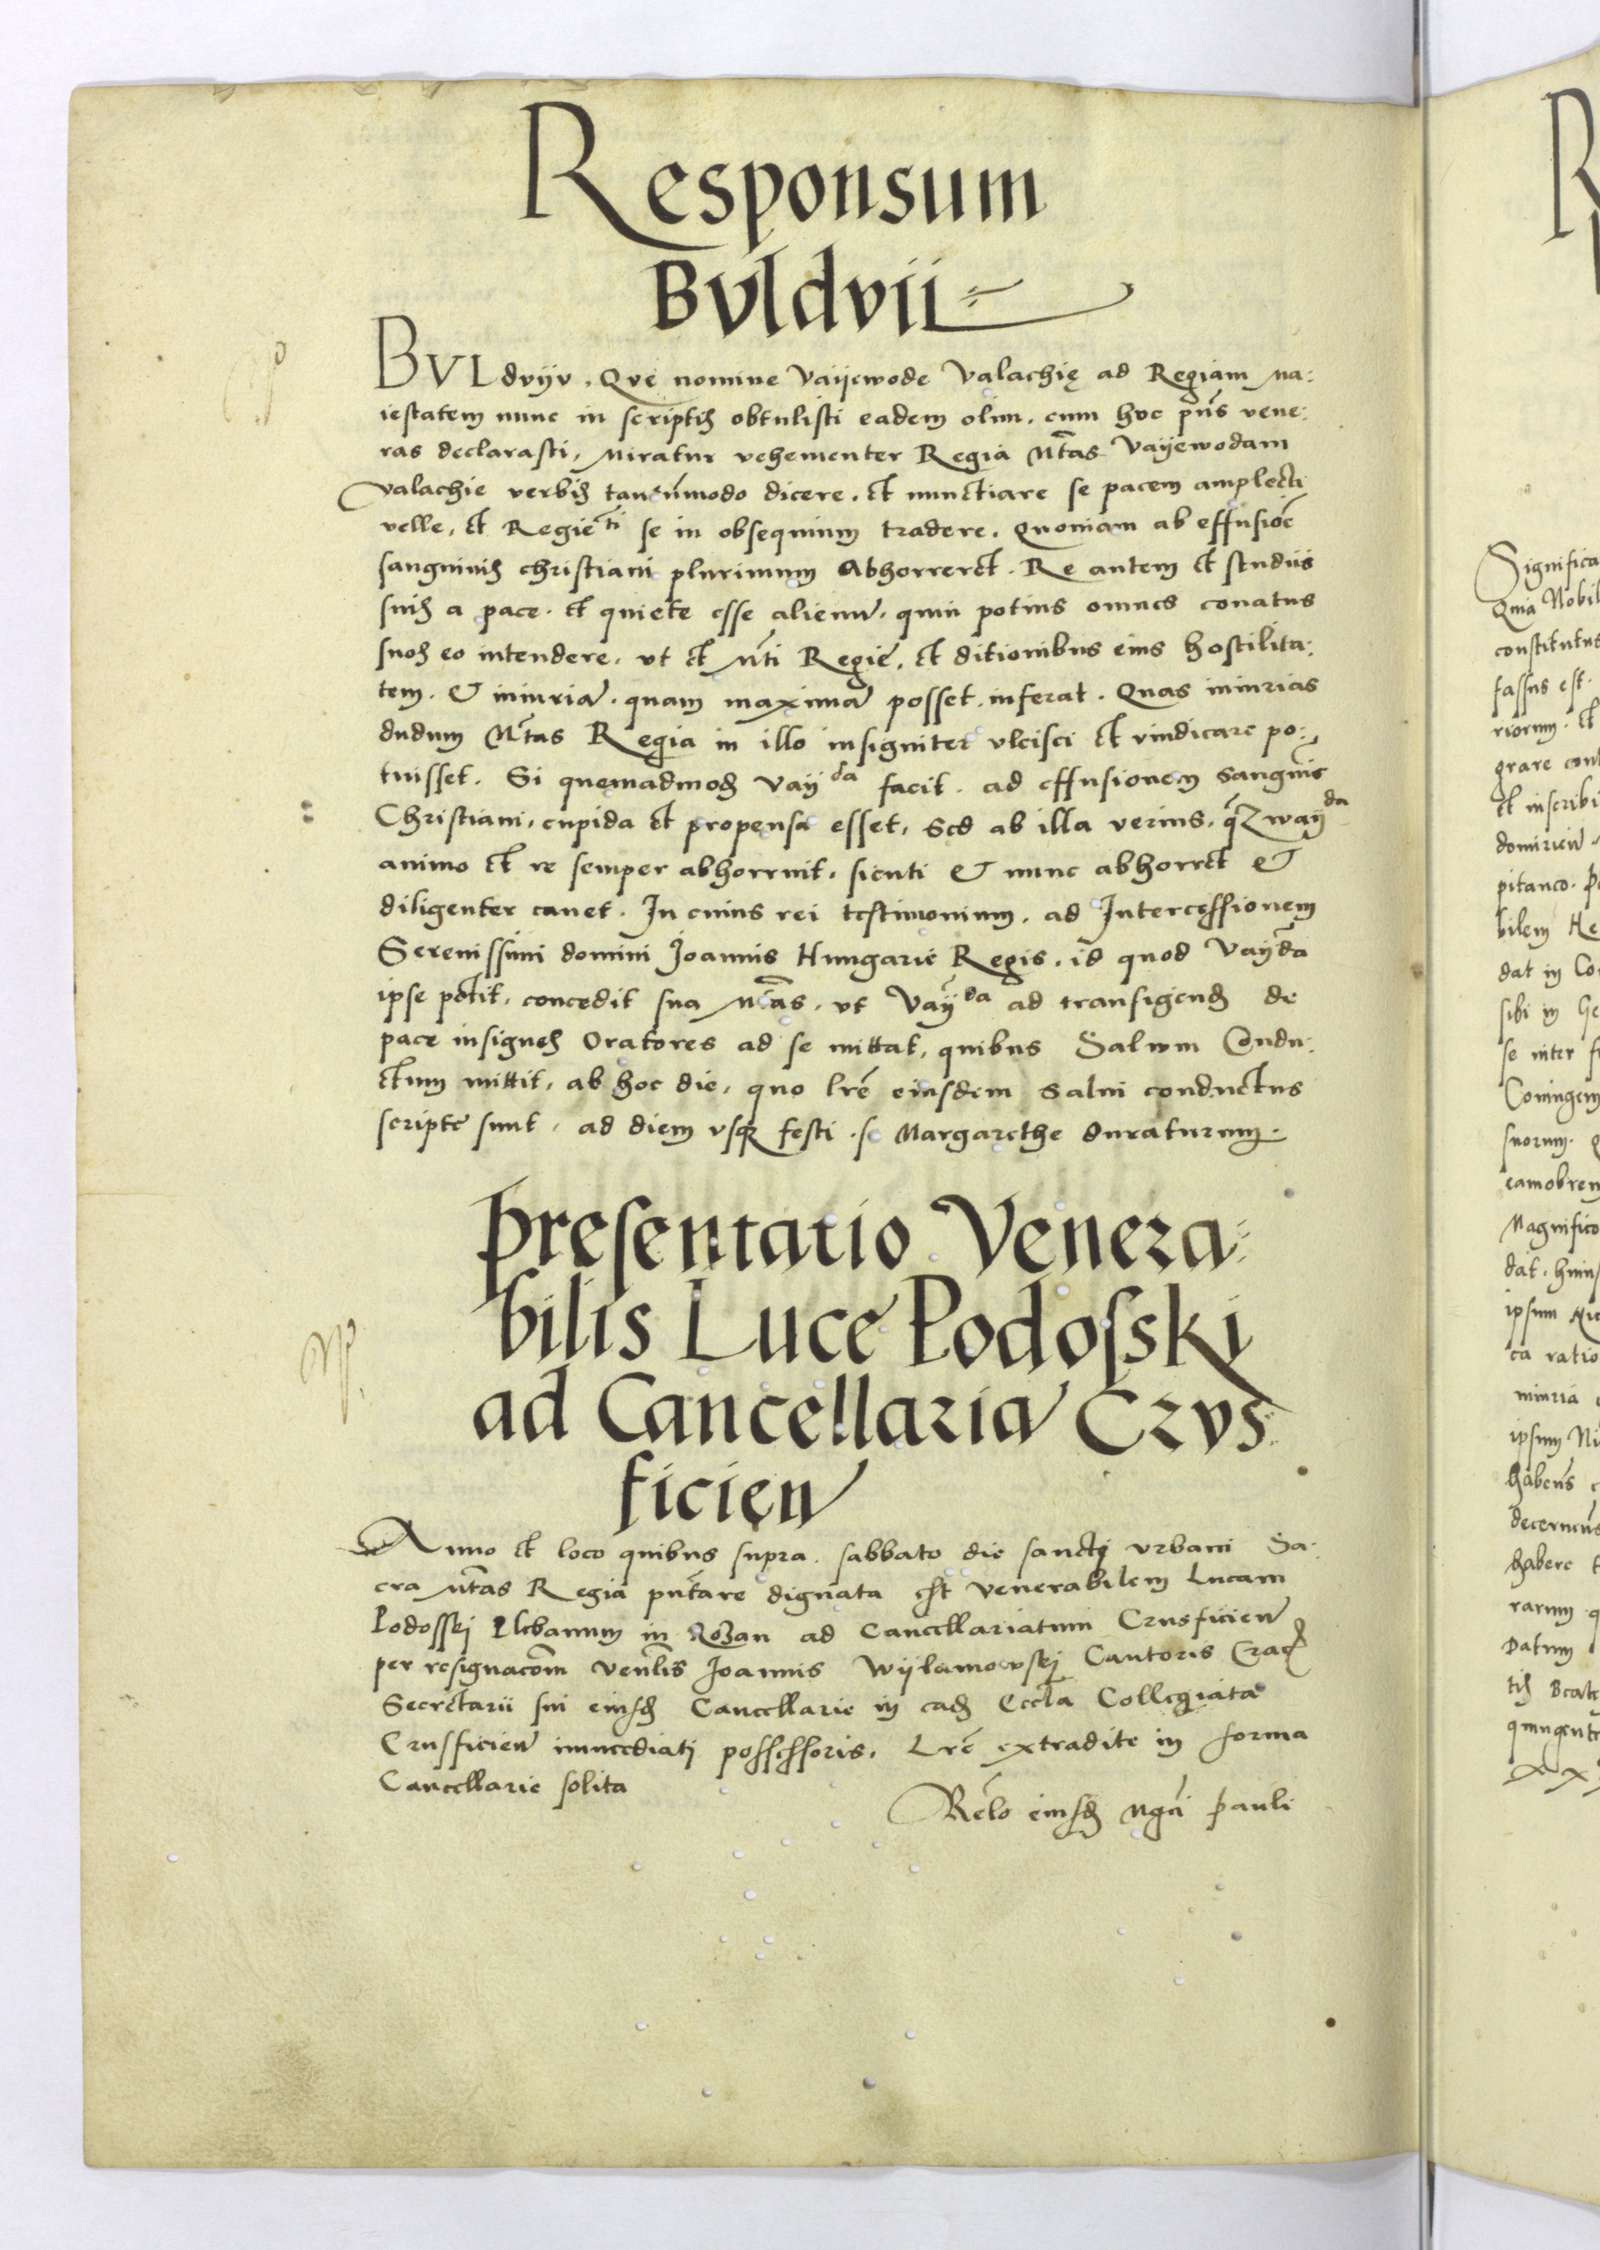 Responsum
Bvldvii
BVLdvijv. Qvę nomine Vaijewode Valachię ad Regiam Ma:
iestatem nunc in scriptis obtulisti eadem olim, cum huc pñs vene:
ras declarasti, Miratur vehementer Regia Mtas Vayewodam
Valachie verbis tantũmodo dicere, et nunctiare se pacem amplecti
velle, et Regieti se in obsequium tradere, Quoniam ab effusioẽ
sanguinis christiani plurimum Abhorreret. Re autem et studiis
suis a pace et quiete esse alienũ, quin potius omnes conatus
suos eo intendere, vt et Mti Regie, et ditionibus eius hostilita:
tem. & iniuriã quam maximã posset inferat. Quas iniurias
dudum Mtas Regia in illo insigniter vlcisci et vindicare po:
tuisset. Si quemadmod Vayda facit ad effusionem sanguis
Christiani, cupida et propensa esset, Sed ab illa verius, qz wayda
animo et re semper abhorruit, sicuti & nunc abhorret &
diligenter cauet. In cuius rei testimonium, ad Intercessionem
Serenissimi domini Joannis Hungarie Regis, id quod Vayda
ipse petit, concedit sua Mtas, vt Vayda ad transigend de
pace insignes Oratores ad se mittat, quibus Salvum Condu:
ctum mittit, ab hoc die, quo lrẽ eiusdem salui conductus
scripte sunt, ad diem vsq festi s Margarethe duraturum.
Presentatio Venera:
bilis Luce Podosski
ad Cancellariã Crvs:
ficien
Anno et loco quibus supra, sabbato die sancti vrbani Sa:
cra Mtas Regia pñtare dignata est venerabilem Lucam
Podosskj Plebanum in Rozan ad Cancellariatum Crusficien
per resignacõm Venẽlis Joannis Wijlamowskj Cantoris Crac
Secretarii sui eiusd Cancellarie in ead Eccla Collegiata
Crusficien immediati possessoris. Lrẽ extradite in forma
Cancellarie solita
Relo eiusd Mgci Pauli
Significa
Quia Nobil
constitutus
fassus est.
riorum. et
grare cont
et inscribi
domirien
pitanco.
bilem He
dat in Co
sibi in Ge
se inter f
Coniugem
suorum.
eamobrem
Magnifico
dat. huius
ipsum Nic
ca ratio
iniuria
ipsum Ni
habens
decernens
habere t
rarum q
Datum
tis Beat
quingente